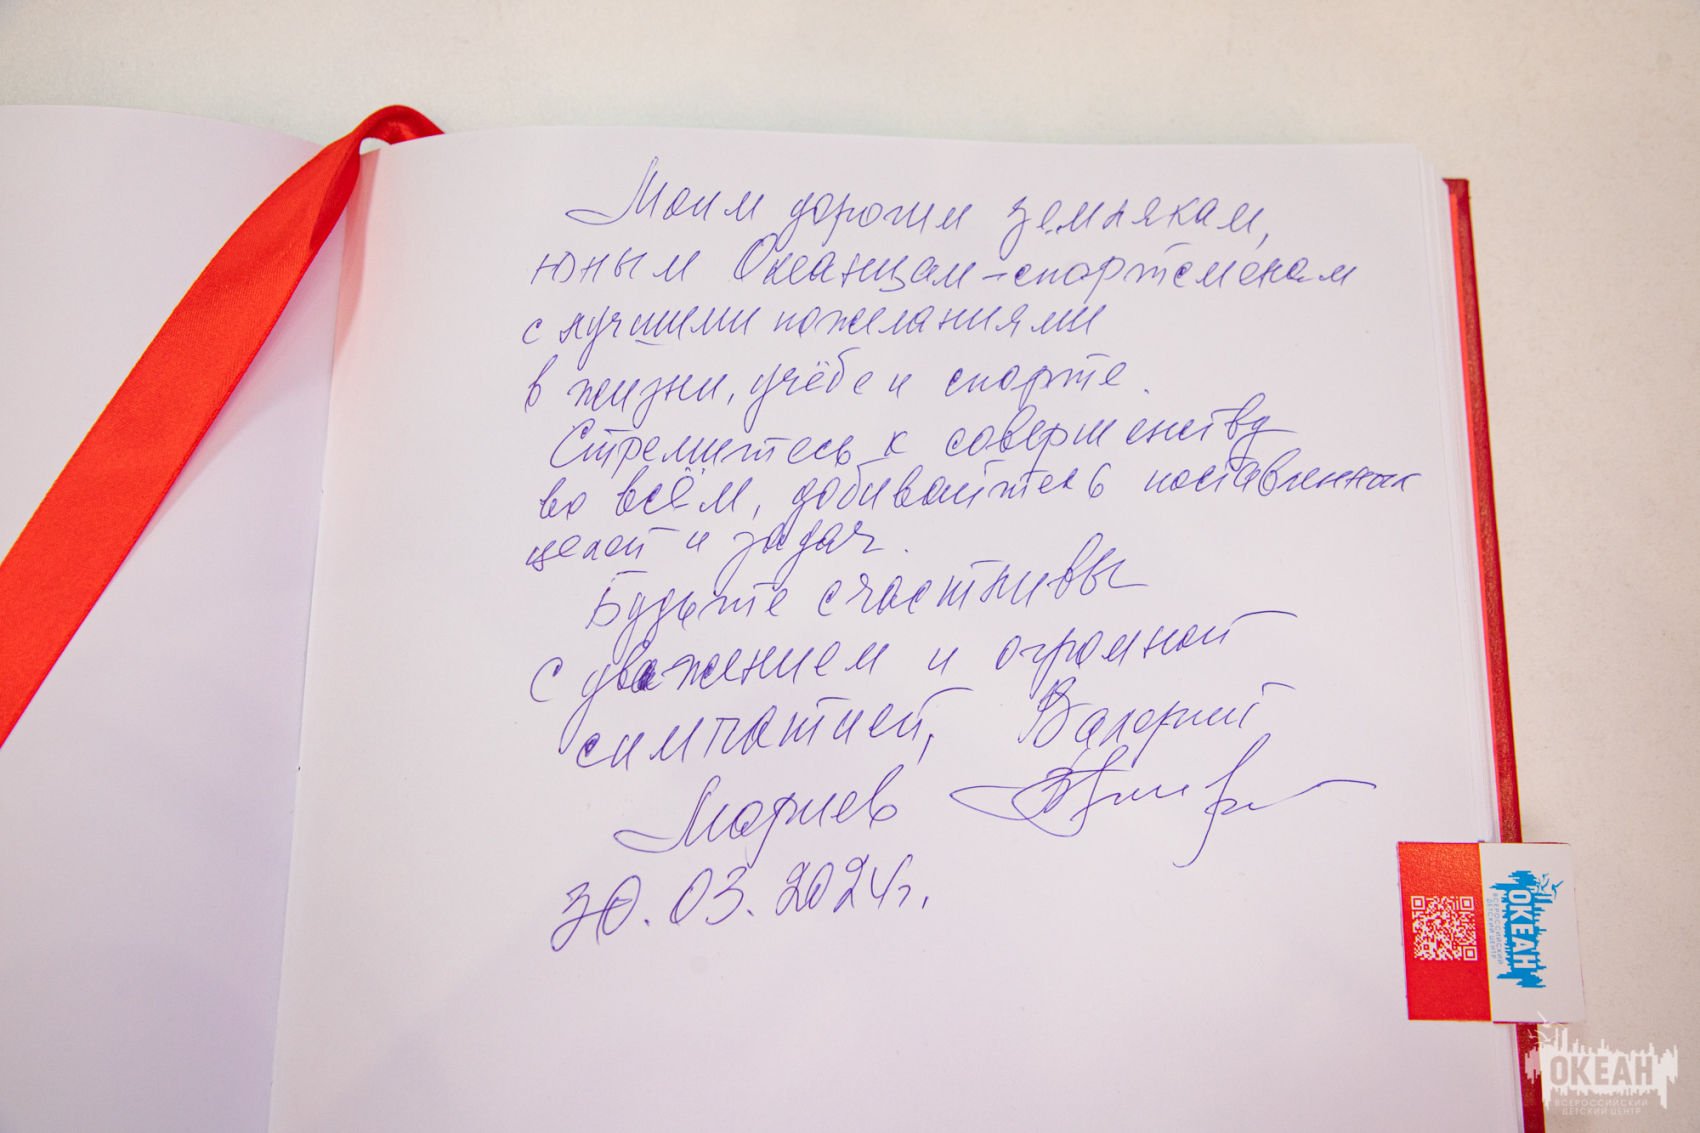 Моим дорогим землякам,
юным Океанцам-спортсменам
с лучшими пожеланиями
в жизни, учёбе и спорте.
Стремитесь к совершенству
во всём, добивайтесь поставленных
целей и задач.
Будьте счастливы
с уважением и огромной
симпатией, Валерий
30.03.2024г.
ОКЕАН
ВСЕРОССИЙСКИЙ
ДЕТСКИЙ ЦЕНТР
ОКЕАН
ВСЕРОССИЙСКИЙ
ДЕТСКИЙ ЦЕНТР